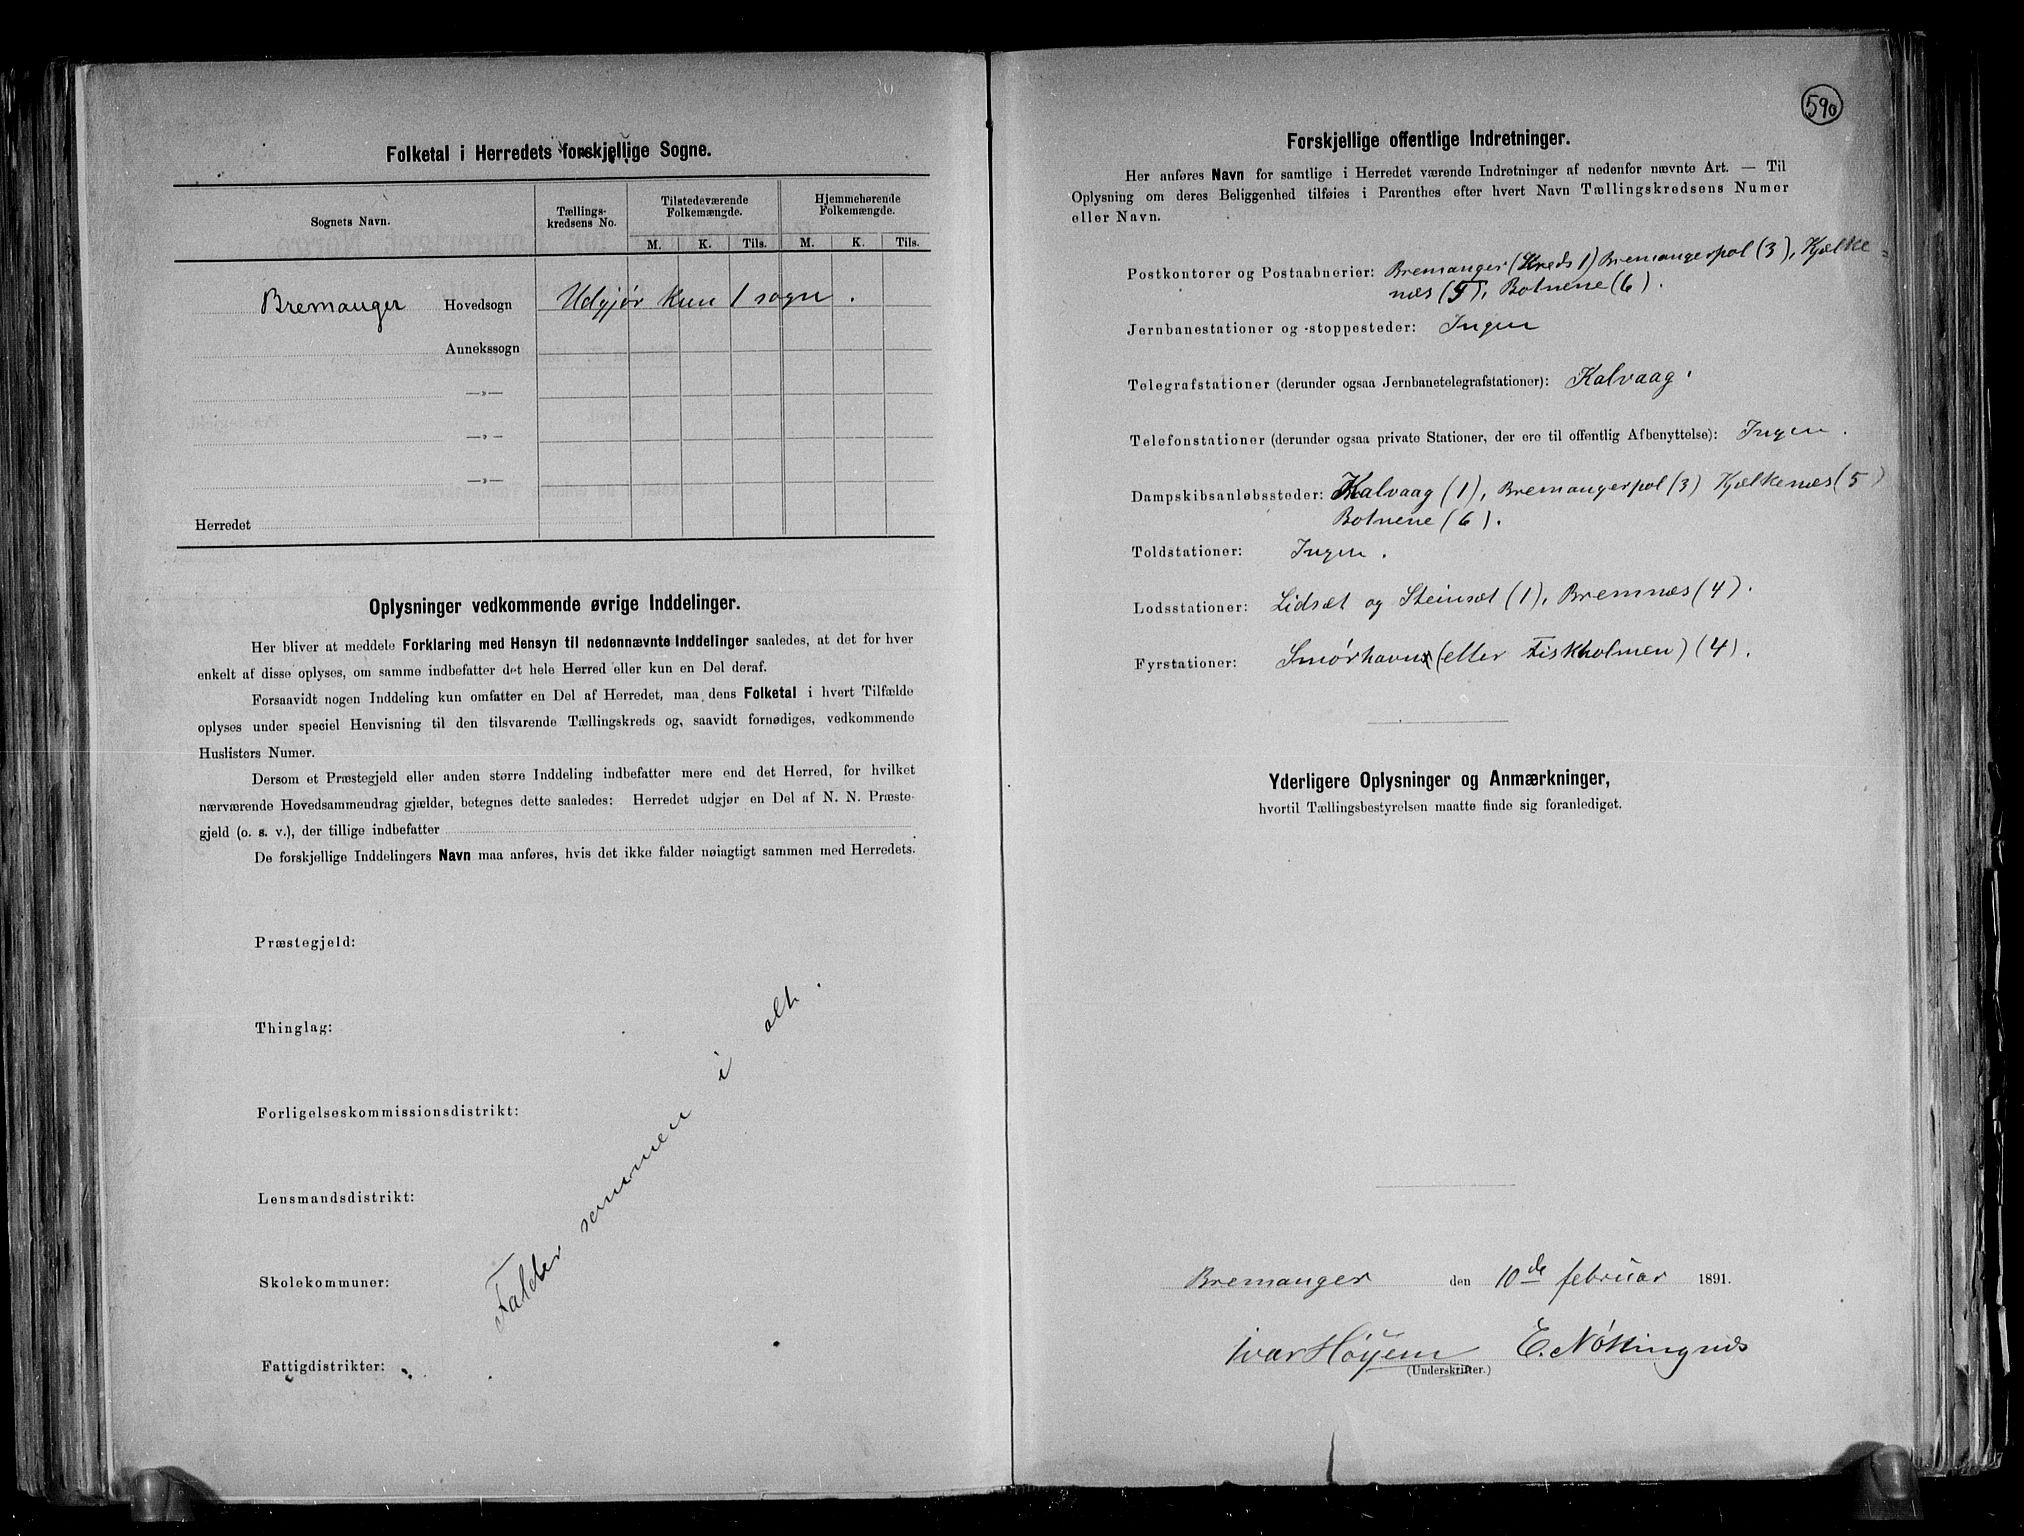 Folketal i Herredets forskjellige Sogne.
Sognets Navn.
Tællings-
kredsens No.
Tilstedeværende
Folkemængde.
Hjemmehørende
Folkemængde.
M. K. Tils. M. K. Tils.
Bremanger Hovedsogn Udgjør kun 1 sogn.
Annekssogn
—»—
—»—
—»—
Herredet
Oplysninger vedkommende øvrige Inddelinger.
Her bliver at meddele Forklaring med Hensyn til nedennævnte Inddelinger saaledes, at det for hver
enkelt af disse oplyses, om samme indbefatter det hele Herred eller kun en Del deraf.
Forsaavidt nogen Inddeling kun omfatter en Del af Herredet, maa dens Folketal i hvert Tilfælde
oplyses under speciel Henvisning til den tilsvarende Tællingskreds og, saavidt fornødiges, vedkommende
Huslisters Numer.
Dersom et Præstegjeld eller anden større Inddeling indbefatter mere end det Herred, for hvilket
nærværende Hovedsammendrag gjælder, betegnes dette saaledes: Herredet udgjør en Del af N. N. Præste-
gjeld (o. s. v.), der tillige indbefatter
De forskjellige Inddelingers Navn maa anføres, hvis det ikke falder nøiagtigt sammen med Herredets.
Præstegjeld:
Thinglag:
Forligelseskommissionsdistrikt:
Lensmandsdistrikt:
Skolekommuner:
Fattigdistrikter:
Falder sammen i alt.
590
Forskjellige offentlige Indretninger.
Her anføres Navn for samtlige i Herredet værende Indretninger af nedenfor nævnte Art. — Til
Oplysning om deres Beliggenhed tilføies i Parenthes efter hvert Navn Tællingskredsens Numer
eller Navn.
Postkontorer og Postaabnerier: Bremanger (Kreds 1) Bremangerpol (3), Kjælke-
næs (5), Botnene (6).
Jernbanestationer og -stoppesteder: Ingen
Telegrafstationer (derunder ogsaa Jernbanetelegrafstationer): Kalvaag.
Telefonstationer (derunder ogsaa private Stationer, der ere til offentlig Afbenyttelse): Ingen.
Dampskibsanløbssteder: Kalvaag (1), Bremangerpol (3) Kjælkenæs (5)
Botnene (6).
Toldstationer: Ingen.
Lodsstationer: Lidsæt og Steinsæt (1), Bremnæs (4).
Fyrstationer: Smørhavn (eller Fiskholmen) (4).
Yderligere Oplysninger og Anmærkninger,
hvortil Tællingsbestyrelsen maatte finde sig foranlediget.
Bremanger den 10de februar 1891.
Ivar Høyem E. Nøttingnes
(Underskrifter.)